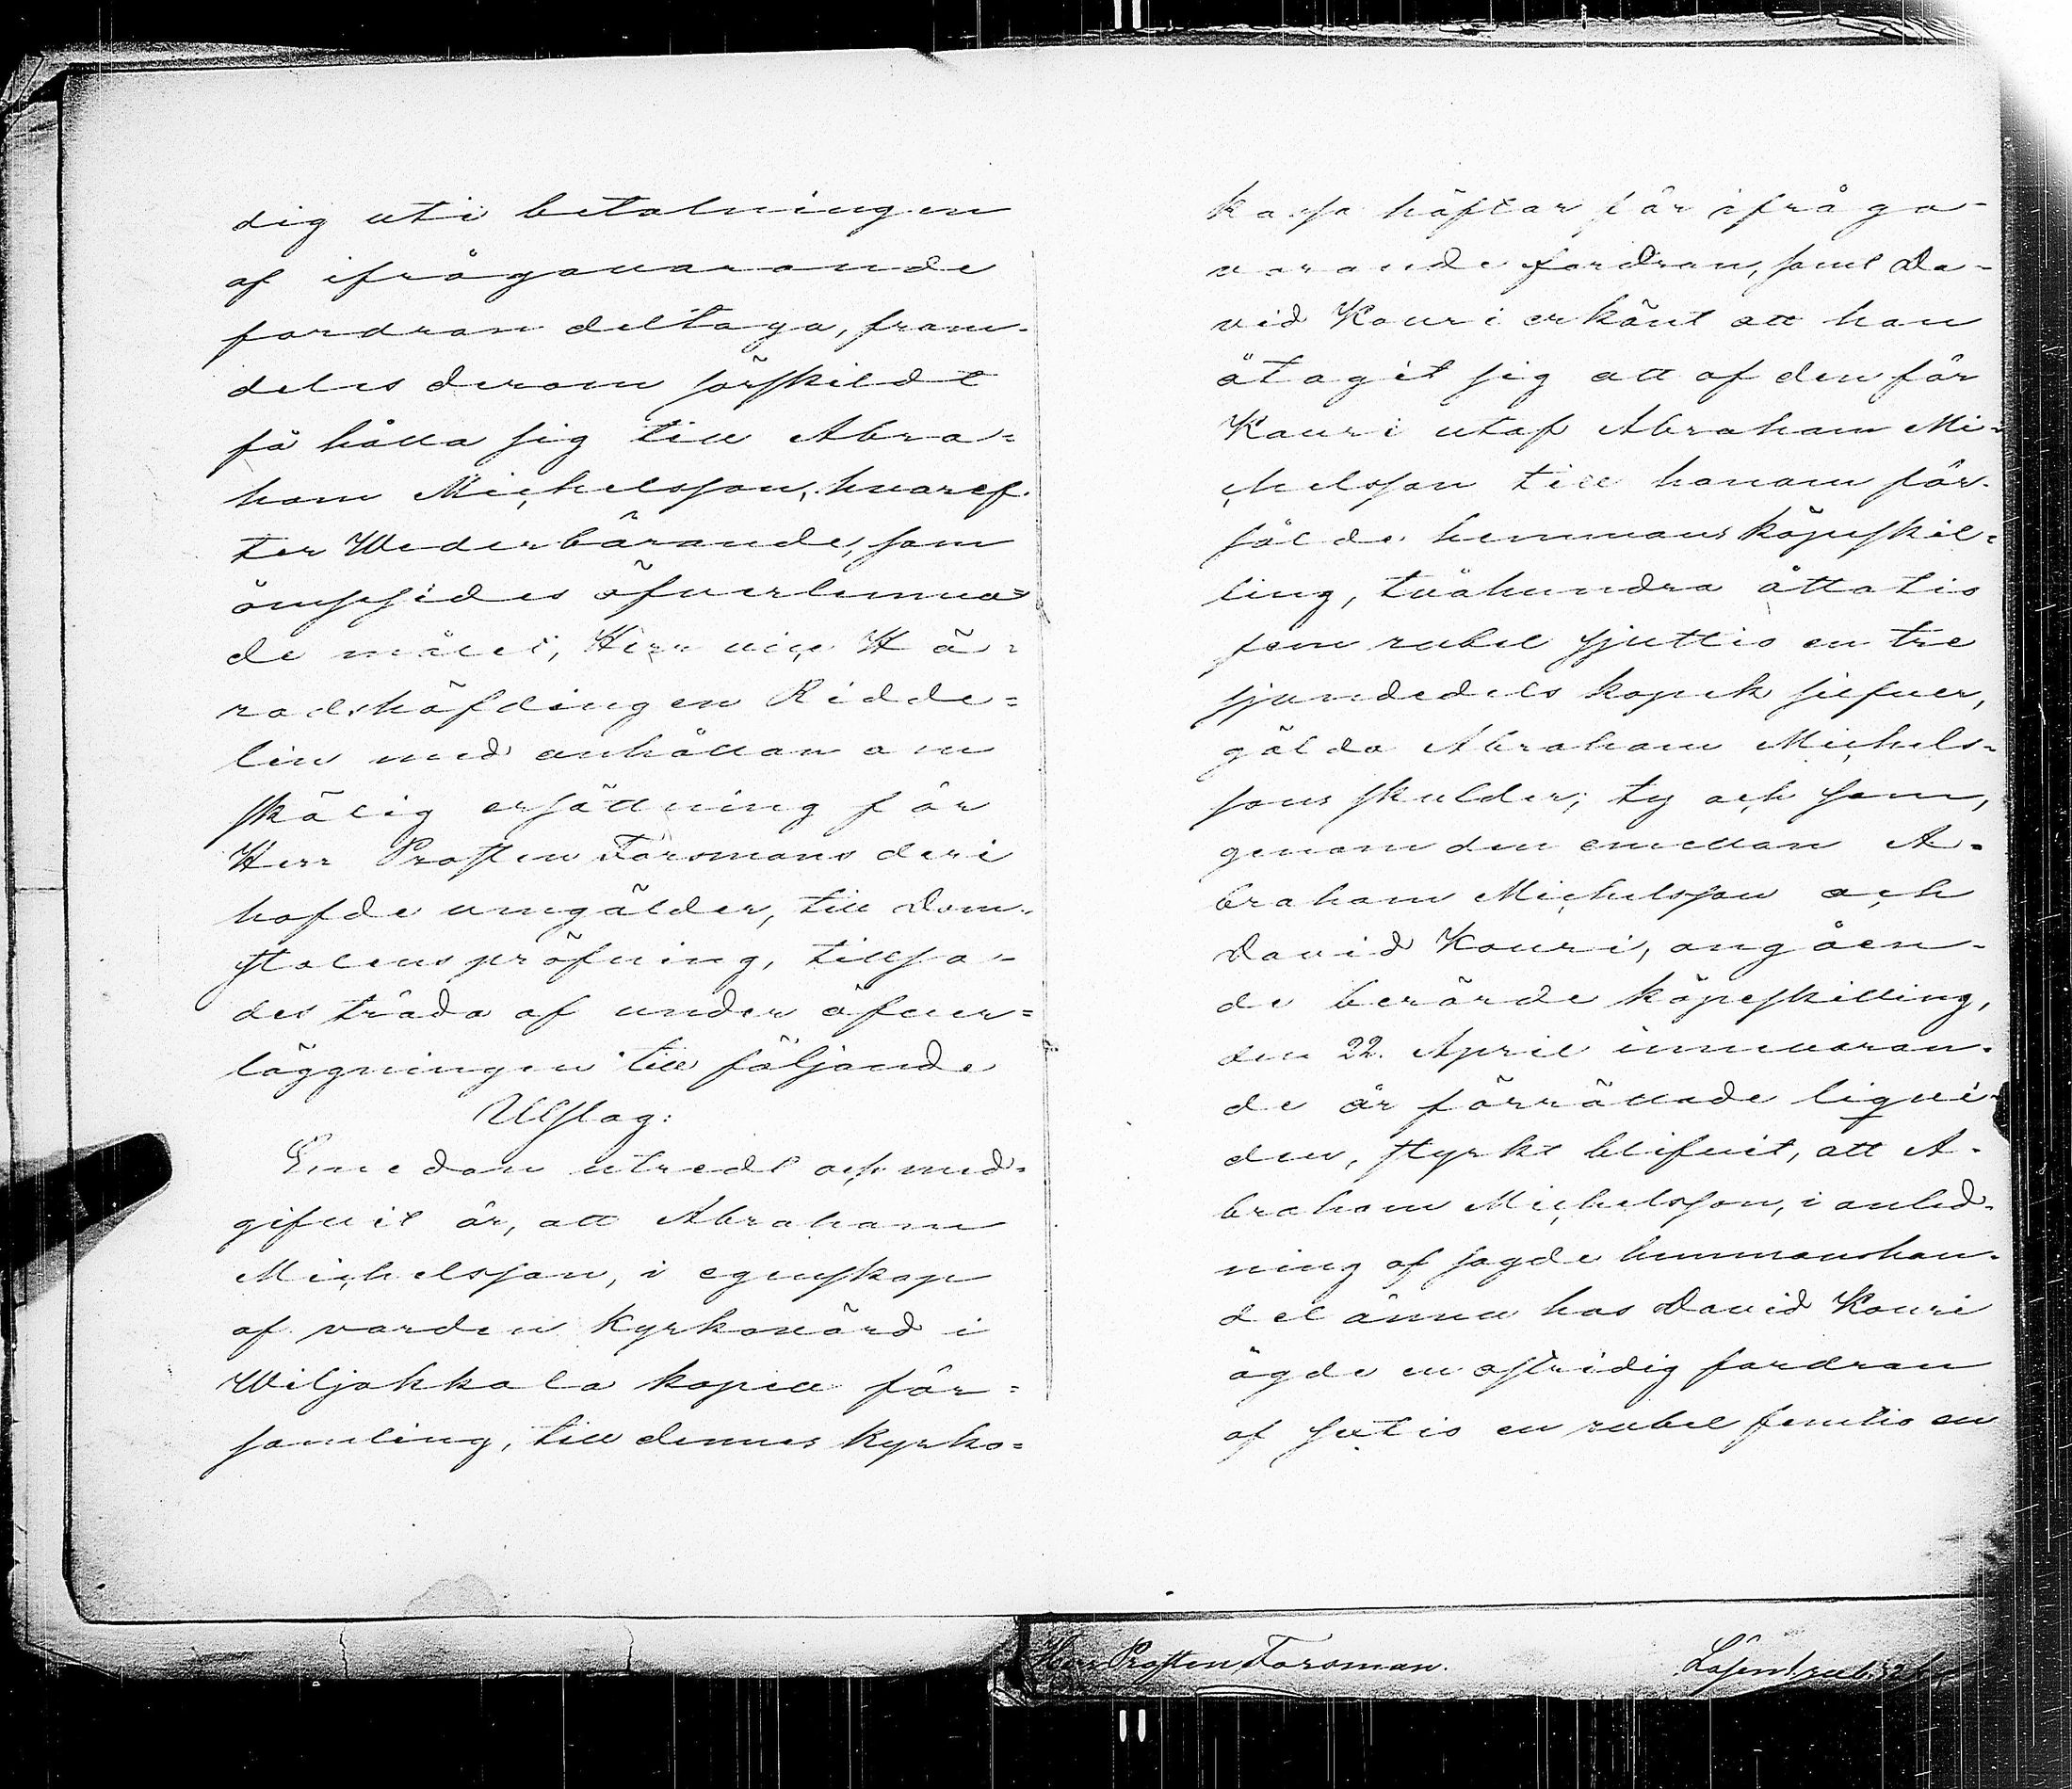 dig uti betalningen
af ifrågavarande
fordran deltaga, fram-
deles derom särskildt
få hålla sig till Abra=
ham Michelsson, hvaref-
ter Wederbörande, som
ömsesides öfverlemna=
de målet, Herr vice Hä=
radshöfdingen Ridde=
lin med anhållan om
skälig ersättning för
Herr Prosten Forsmans deri
hafde umgälder, till Dom-
stolens pröfning, tillsa-
des träda af under öfver=
läggningen till följande
Utslag:
Emedan utredt och med-
gifvit är, att Abraham
Michelsson, i egenskap
af varden kyrkovärd i
Wiljakkala kapell för=
samling, till dennes kyrko=
kassa häftar för ifråga-
varande fordran, samt Da-
vid Kouri erkänt att han
åtagit sig att af den för
Kouri utaf Abraham Mi-
chelsson till honom för-
sålde hemmans köpeskil=
ling, tvåhundra åttatio
fem rubel sjuttio en tre
sjundedels kopek silfver,
gälda Abraham Michels-
sons skulder; ty och som,
genom den emellan A-
braham Michelsson och
David Kouri, angåen-
de berörde köpeskilling,
den 22. April innevaran-
de år förrättade liqvi-
den, styrkt blifvit, att A-
braham Michelsson, i anled-
ning af sagde hemmanshan-
del ännu hos David Kouri
ägde en ostridig fordran
af sextio en rubel femtio en
Herr Prosten Forsman. Lösen 1 rub. 52 k.